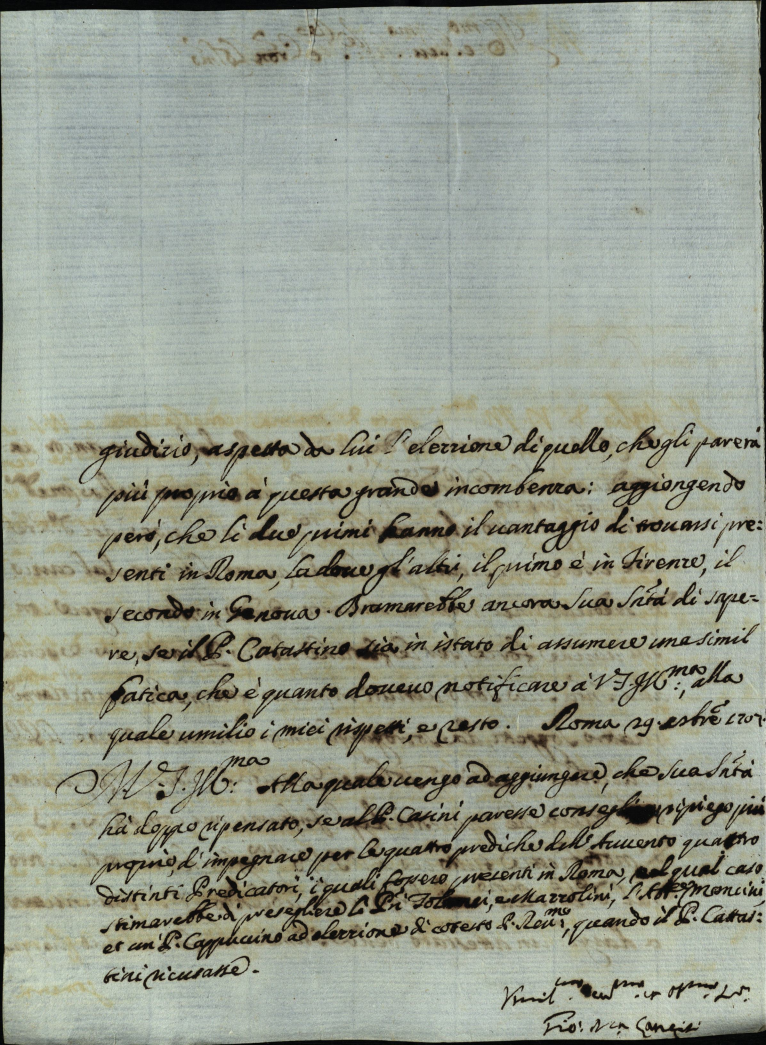 giudizio, aspetta da lui l'elezzione di quello, che gli parerà
più proprio à questa grande incombenza: aggiongendo
però, che li due primi hanno il vantaggio di trouarsi pre=
senti in Roma, la doue gl'altri, il primo è in Firenze, il
secondo in Genoua. Bramarebbe ancora Sua Sn.tà di sape=
re, se il P. Catastino sia in istato di assumere una simil
fatica, che è quanto doueuo notificare à V.S. Ill.ma, alla
quale umilio i miei rispetti, e resto. Roma 29. 8bre 170
V.S. Ill.ma Alla quale uengo ad aggiungere, che Sua Sn.tà
hà doppo ripensato, se al P. Casini paresse ripiego più
proprio, d'impegnare per le quattro prediche dell'Auuento quattro
distinti Predicatori, i quali fossero presenti in Roma, nel qual caso
stimarebbe di presegliere li P.ri e Mazzolini, l'Ab.e Mancini
et un P. Cappuccino ad elezzione di cotesto P. Reu.mo, quando il P. Cattas=
tini ricusasse.